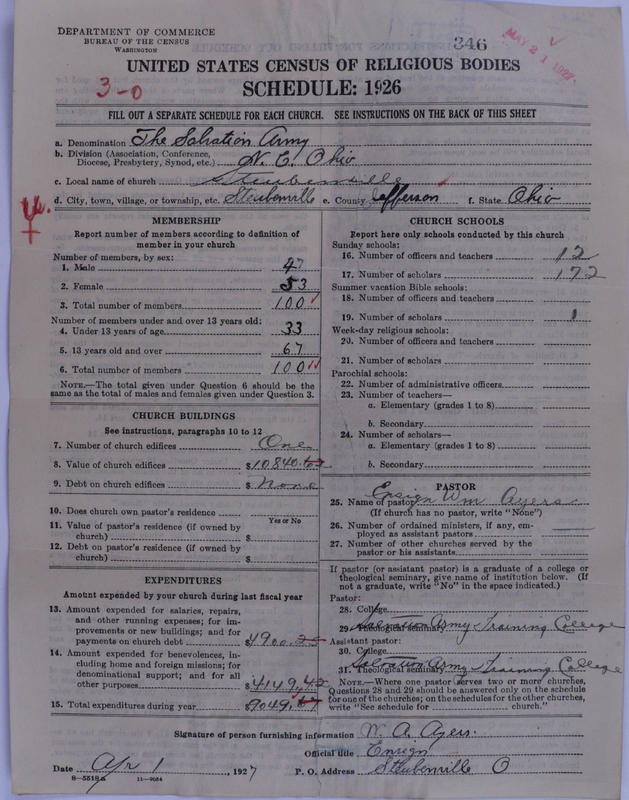 DEPARTMENT OF COMMERCE
BUREAU OF THE CENSUS
WASHINGTON
346
MAY 21 1927
UNITED STATES CENSUS OF RELIGIOUS BODIES
3-0
SCHEDULE: 1926
FILL OUT A SEPARATE SCHEDULE FOR EACH CHURCH. SEE INSTRUCTIONS ON THE BACK OF THIS SHEET
a. Denomination The Salvation Army
b. Division (Association, Conference,
Diocese, Presbytery, Synod, etc.) N. E. Ohio
c. Local name of church Steubenville
d. City, town, village, or township, etc. Steubenville e. County Jefferson f. State Ohio
MEMBERSHIP
Report number of members according to definition of
member in your church
Number of members, by sex:
1. Male 47
2. Female 53
3. Total number of members 100
Number of members under and over 13 years old:
4. Under 13 years of age 33
5. 13 years old and over 67
6. Total number of members 100
NOTE.—The total given under Question 6 should be
same as the total of males and females given under Question 3.
CHURCH BUILDINGS
See instructions, paragraphs 10 to 12
7. Number of church edifices One
8. Value of church edifices $10840.
9. Debt on church edifices $ None
10. Does church own pastor's residence
Yes or No
11. Value of pastor's residence (if owned by
church) $
12. Debt on pastor's residence (if owned by
church) $
EXPENDITURES
Amount expended by your church during last fiscal year
13. Amount expended for salaries, repairs,
and other running expenses; for im-
provements or new buildings; and for
payments on church debt $4900.
14. Amount expended for benevolences, in-
cluding home and foreign missions; for
denominational support; and for all
other purposes $4149.42
15. Total expenditures during year $9049.
CHURCH SCHOOLS
Report here only schools conducted by this church
Sunday schools:
16. Number of officers and teachers 12
17. Number of scholars 172
Summer vacation Bible schools:
18. Number of officers and teachers
19. Number of scholars
Week-day religious schools:
20. Number of officers and teachers
21. Number of scholars
Parochial schools:
22. Number of administrative officers
23. Number of teachers—
a. Elementary (grades 1 to 8)
b. Secondary
24. Number of scholars—
a. Elementary (grades 1 to 8)
b. Secondary
PASTOR
25. Name of pastor Ensign Wm Ayers
(If church has no pastor, write "None")
26. Number of ordained ministers, if any, em-
ployed as assistant pastors
27. Number of other churches served by the
pastor or his assistants
If pastor (or assistant pastor) is a graduate of a college or
theological seminary, give name of institution below. (If
not a graduate, write "No" in the space indicated.)
Pastor:
28. College
29. Theological seminary Salvation Army Training College
Assistant pastor:
30. College
31. Theological seminary Salvation Army Training College
NOTE.—Where one pastor serves two or more churches,
Questions 28 and 29 should be answered only on the schedule
for one of the churches; on the schedules for the other churches,
write "See schedule for church."
Signature of person furnishing information W. A. Ayers.
Official title Ensign
Date Apr 1, 1927 P. O. Address Steubenville O
8-5518a 11-9054